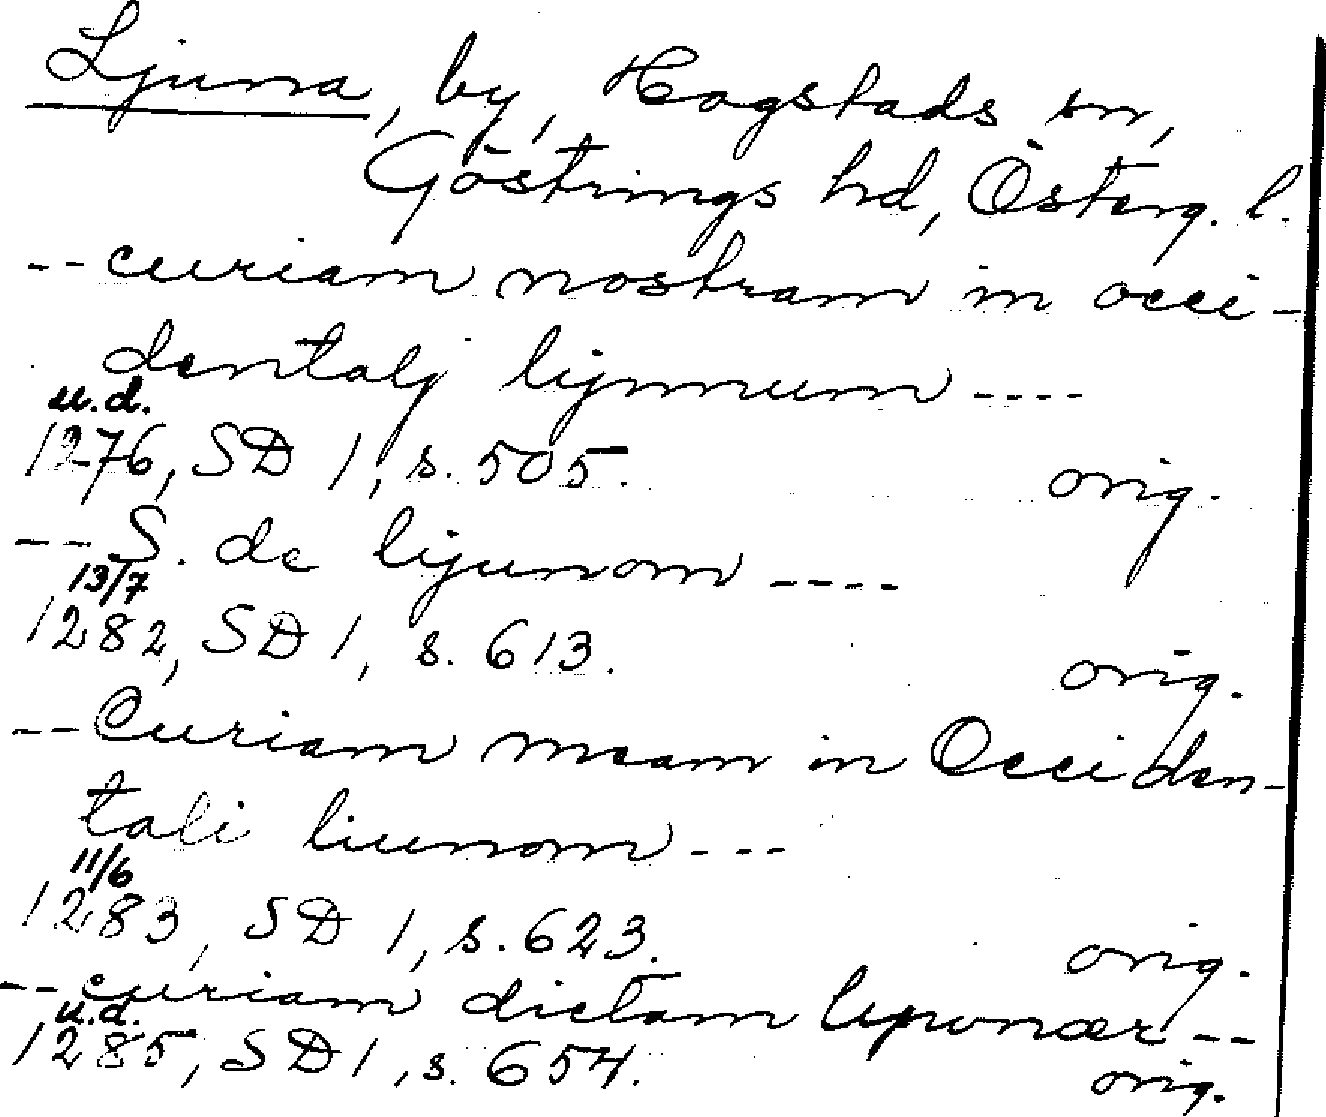 Ljuna, by, Hogstads sn,
Göstrings hd, Österg. l.
-- curiam nostram in occi-
dentalj lijunum ----
u.d.
1276, SD 1, s. 505. orig.
-- S. de lijunom ----
13/7
1282, SD 1, s. 613. orig.
-- Curiam meam in Occiden-
tali liunom ---
11/6
1283, SD 1, s. 623. orig.
-- curiam dictam --
u.d.
1285, SD 1, s. 654. orig.